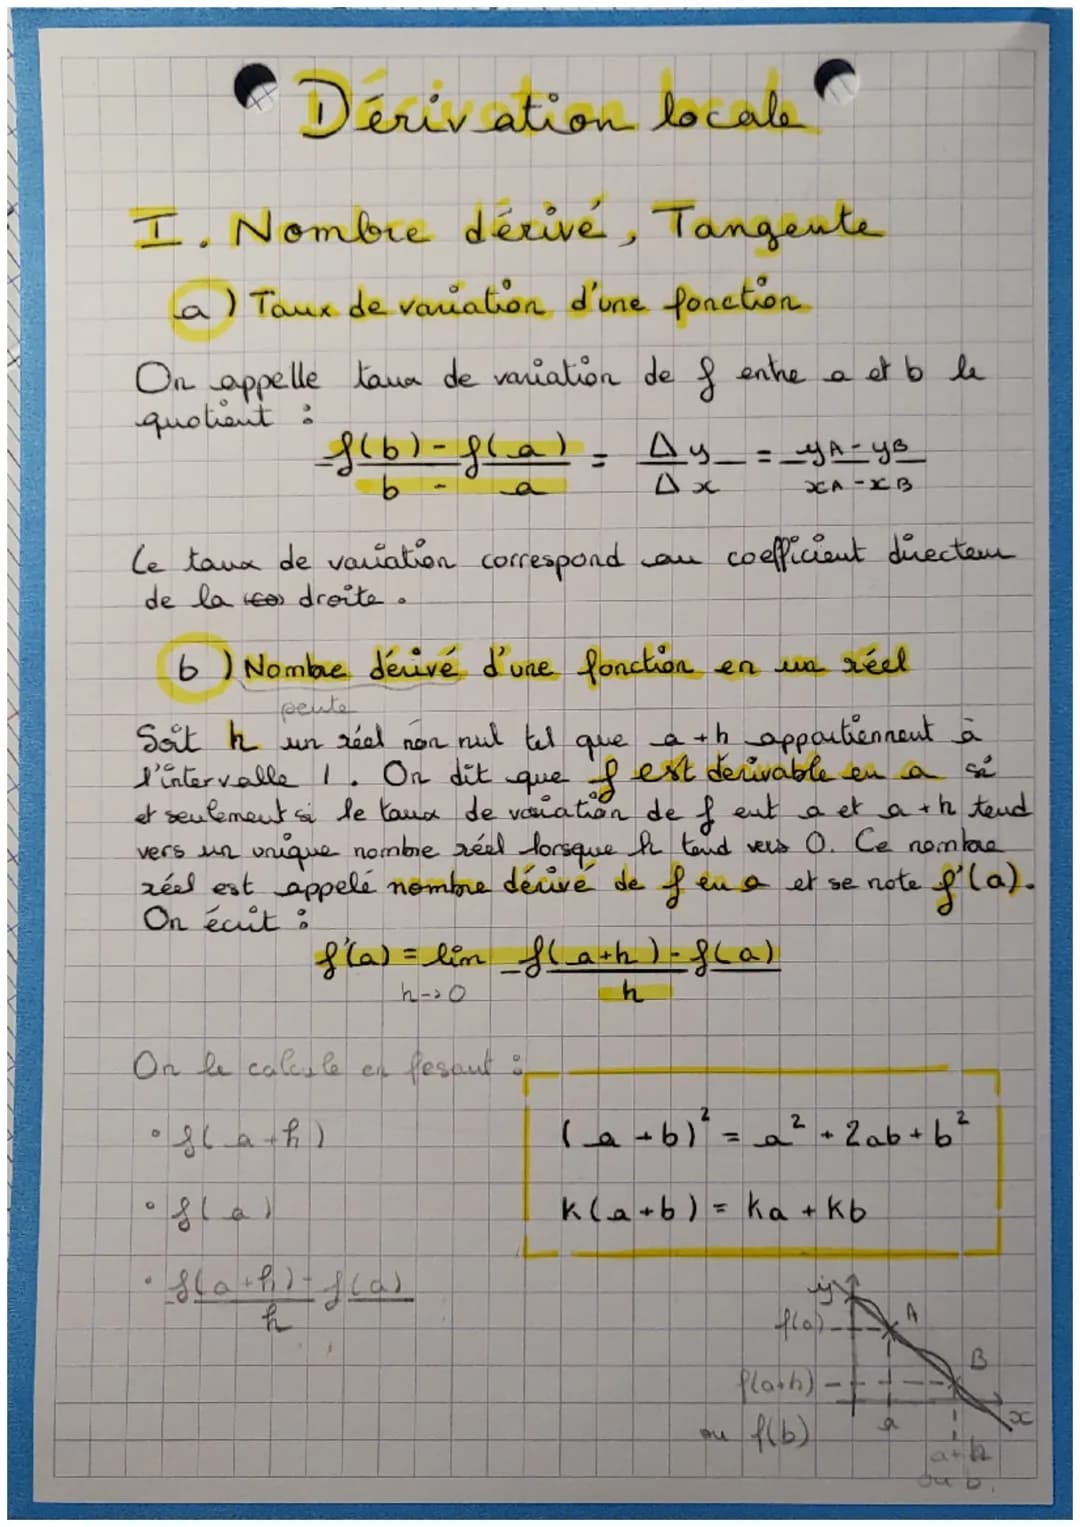 Dérivation locale
I. Nombre dérivé, Tangente
a) Taux de variation d'une fonction
On appelle taux de variation de f entre a et b le
quotient :
f(b) - f(a) / b - a = Δy / Δx = yA - yB / xA - xB
Le taux de variation correspond au coefficient directeur
de la droite.
b) Nombre dérivé d'une fonction en un réel
pente
Soit h un réel non nul tel que a+h appartiennent à
l'intervalle I. On dit que f est dérivable en a si
et seulement si le taux de variation de f ent a et a+h tend
vers un unique nombre réel lorsque h tend vers 0. Ce nombre
réel est appelé nombre dérivé de f en a et se note f'(a).
On écrit :
f'(a) = lim f(a+h) - f(a) / h
h->0
On le calcule en fesant :
• f(a+h)
(a+b)² = a² + 2ab + b²
• f(a)
k(a+b) = ka + kb
• f(a+h) - f(a) / h
y
f(a)
A
B
f(a+h)
x
ou f(b)
a
a+h
ou b.